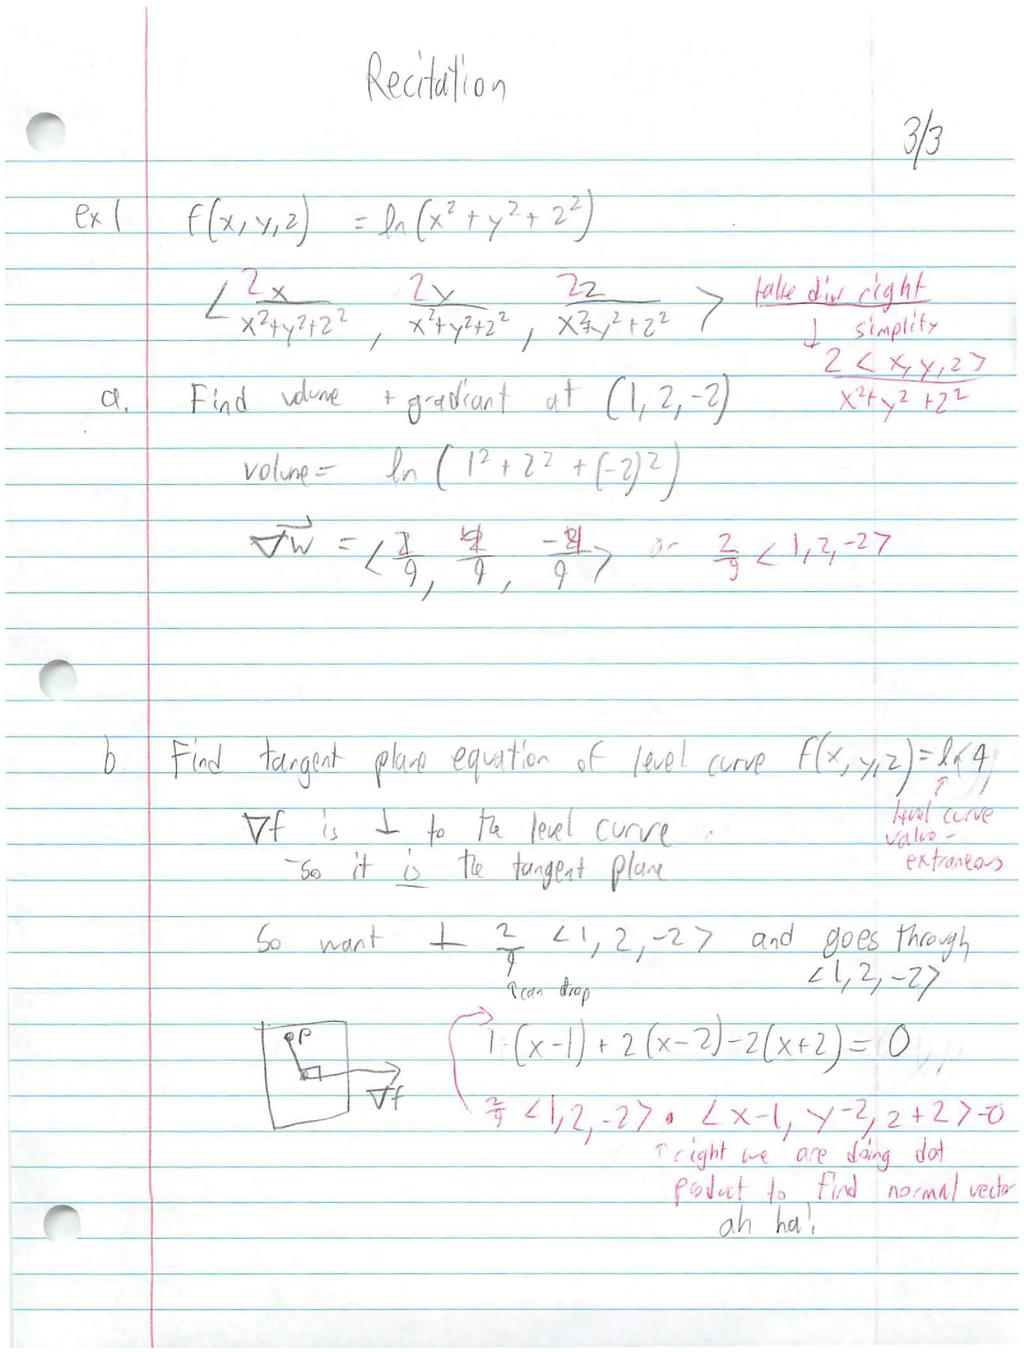 Recitation
3/3
ex 1 f(x, y, z) = ln(x² + y² + z²)
< 2x/(x²+y²+z²), 2y/(x²+y²+z²), 2z/(x²+y²+z²) > take div right
↓ simplify
2 <x, y, z>/(x²+y²+z²)
a. Find volume + gradiant at (1, 2, -2)
volume = ln (1² + 2² + (-2)²)
∇w = < 2/9, 4/9, -4/9 > or 2/9 <1, 2, -2>
b. Find tangent plane equation of level curve f(x, y, z) = ln 9
↑
level curve
value -
extraneous
∇f is ⊥ to the level curve
-so it is the tangent plane
So want ⊥ 2/9 <1, 2, -2> and goes through
<1, 2, -2>
↑can drop
P
∇f
1·(x-1) + 2(x-2) -2(x+2) = 0
2/9 <1, 2, -2> • <x-1, y-2, z+2> = 0
↑ right we are doing dot
product to find normal vector
ah ha!